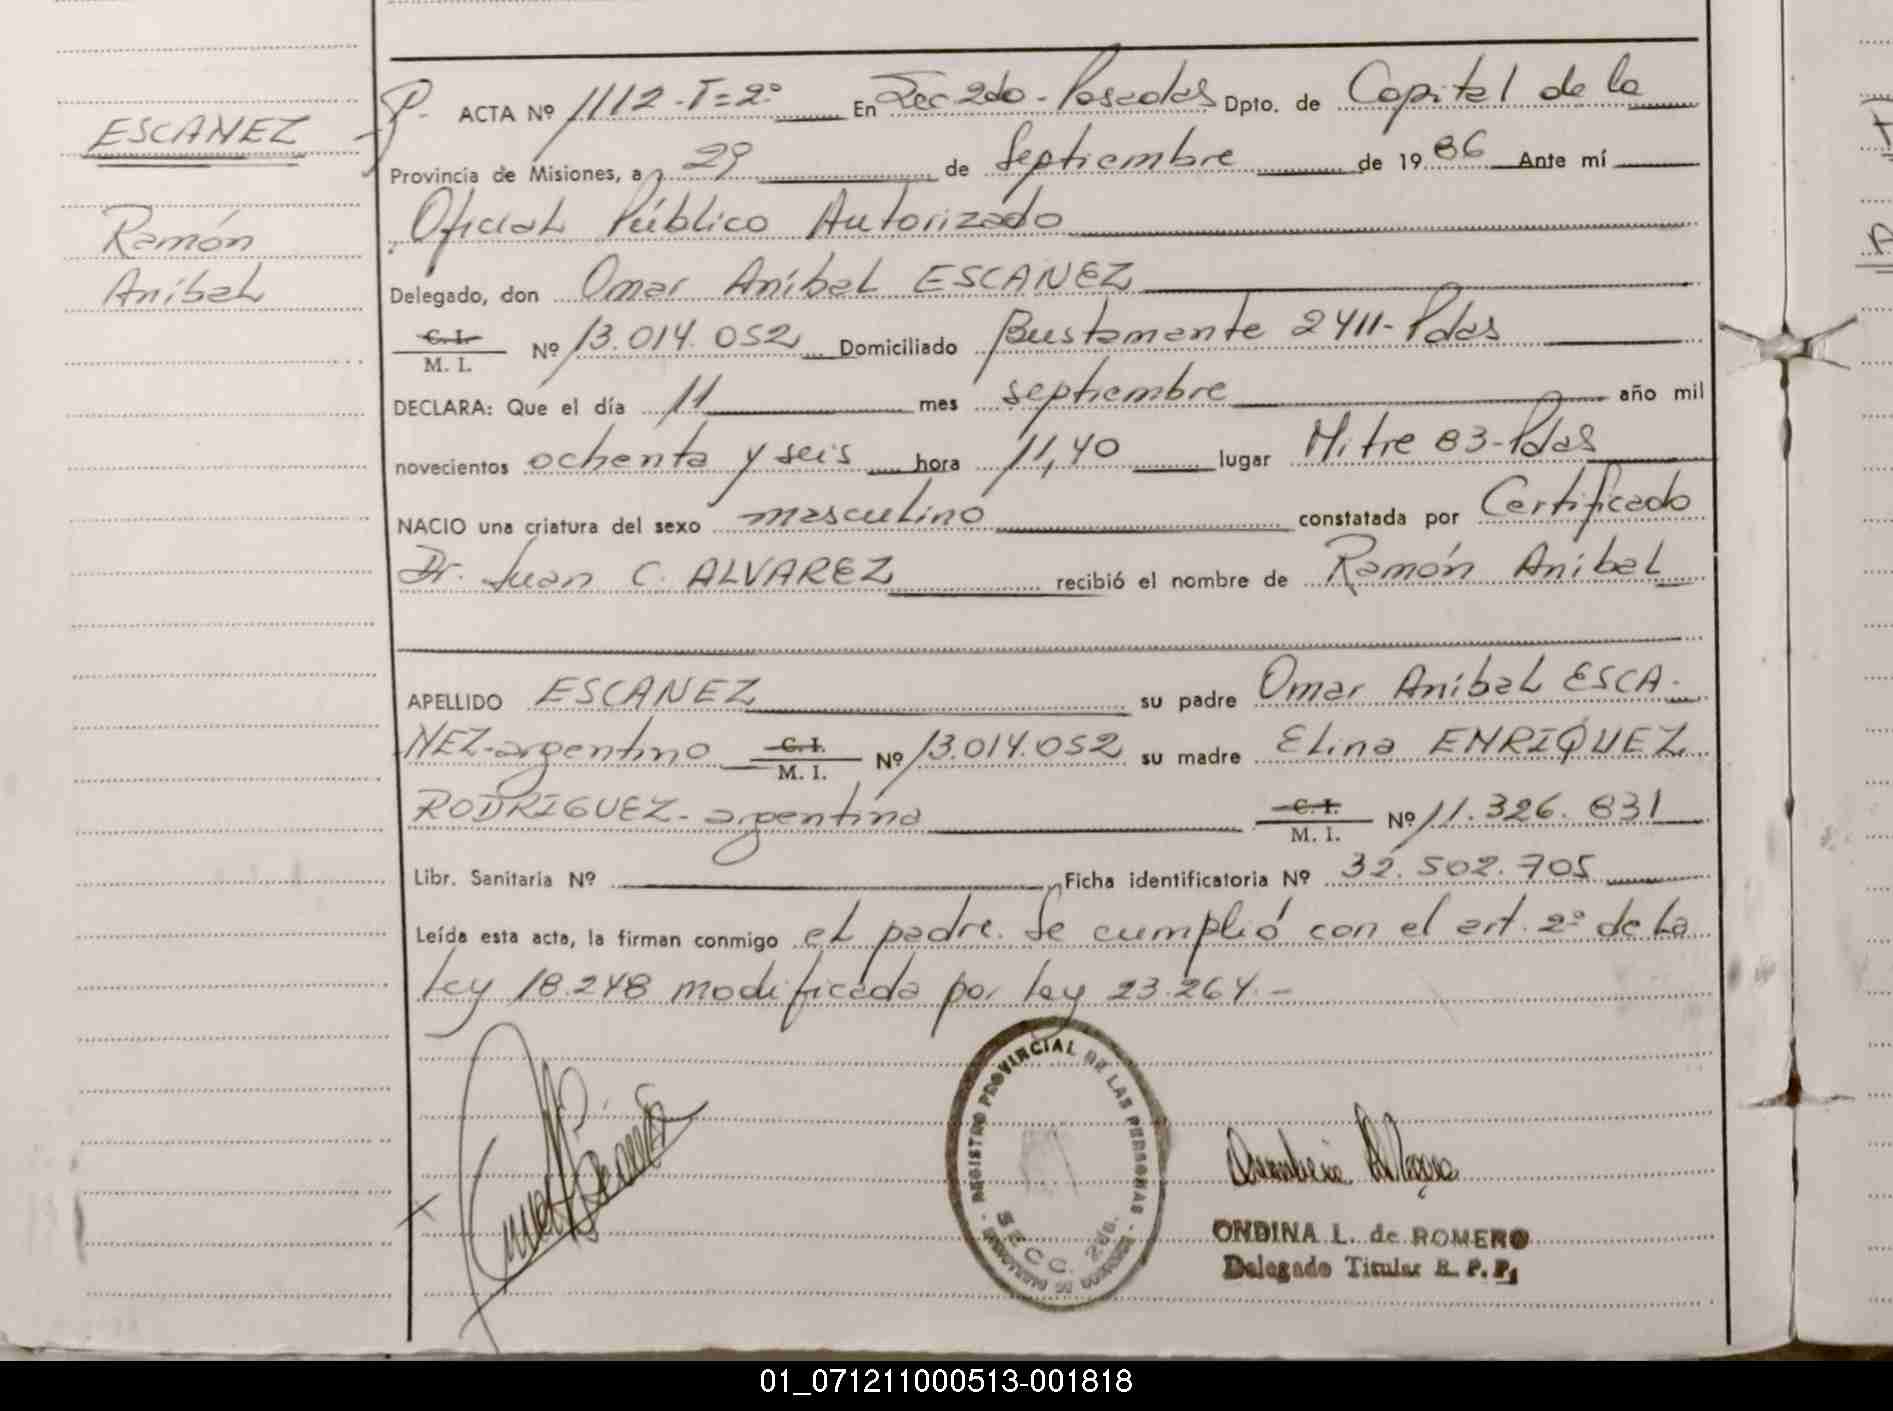 ESCANEZ
Ramón
Aníbal
ACTA Nº 1112-T=2º En Sec 2do-Posadas Dpto. de Capital de la
Provincia de Misiones, a 29 de Septiembre de 1986 Ante mí
Oficial Público Autorizado
Delegado, don Omar Aníbal ESCANEZ
C. I.
M. I. Nº 13.014.052 Domiciliado Bustamante 2411-Pdas
DECLARA: Que el día 11 mes septiembre año mil
novecientos ochenta y seis hora 11,40 lugar Mitre 83-Pdas
NACIO una criatura del sexo masculino constatada por Certificado
Dr. Juan C. ALVAREZ recibió el nombre de Ramón Aníbal
APELLIDO ESCANEZ su padre Omar Aníbal ESCA-
NEZ-argentino C. I. M. I. Nº 13.014.052 su madre Elina ENRIQUEZ
RODRIGUEZ-argentina C. I. M. I. Nº 11.326.831
Libr. Sanitaria Nº Ficha identificatoria Nº 32.502.705
Leída esta acta, la firman conmigo el padre. Se cumplió con el art. 2º de la
ley 18.248 modificada por ley 23.264.-
REGISTRO PROVINCIAL DE LAS PERSONAS
SECC. 2da.
ONDINA L. de ROMERO
Delegado Titular R. P. P.
01_071211000513-001818